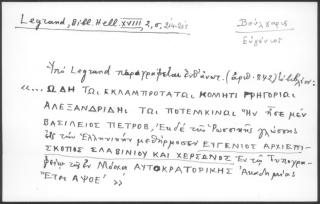 Legrand, Bibl. Hell. XVIII, 2, σ. 214-215
Βούλγαρις
Εὐγένιος
Ὑπὸ Legrand παραγράφεται ἐνθ' ἀνωτ. (ἀριθ. 842)
«...ΩΔΗ ΤΩι ΕΚΛΑΜΠΡΟΤΑΤΩι ΚΟΜΗΤΙ ΓΡΗΓΟΡΙΩι
ΑΛΕΞΑΝΔΡΙΔΗι ΤΩι ΠΟΤΕΜΚΙΝΩι Ἣν ἦσε μὲν
ΒΑΣΙΛΕΙΟΣ ΠΕΤΡΟΒ, Ἐκ δὲ τῆς Ῥωσσικῆς γλώσσης
εἰς τὴν Ἑλληνικὴν μεθήρμοσεν ΕΥΓΕΝΙΟΣ ΑΡΧΙΕΠΙ-
ΣΚΟΠΟΣ ΣΛΑΒΙΝΙΟΥ ΚΑΙ ΧΕΡΣΩΝΟΣ Ἐν τῇ Τυπογρα-
φείᾳ τῆς ἐν Μόσχᾳ ΑΥΤΟΚΡΑΤΟΡΙΚΗΣ Ἀκαδημίας
Ἔτει ΑΨΟΕ' »